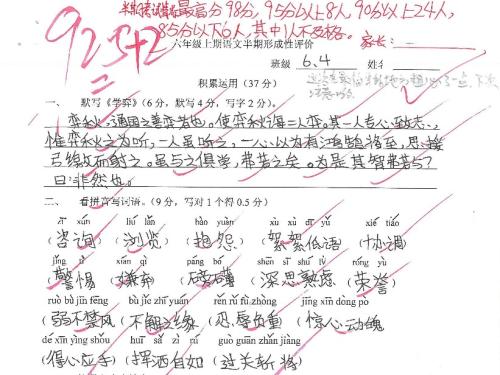 92.5+2
半期考试情况最高分98分,95分以上8人,90分以上24人,
85分以下6人,其中1人不及格。
家长:
六年级上期语文半期形成性评价
班级 6.4 姓名
积累运用(37分)
一、 默写《学弈》(6分,默写4分,写字2分)。
弈秋,通国之善弈者也。使弈秋诲二人弈。其一人专心致志,
惟弈秋之为听,一人虽听之,一心以为有鸿鹄将至,思援
弓缴而射之。虽与之俱学,弗若之矣。为是其智弗若与?
曰:非然也。
二、 看拼音写词语。(9分,写对1个得0.5分)
zī xún liú lǎn bào yuàn xù xù dī yǔ xié tiáo
(咨询) (浏览) (抱怨) (絮絮低语) (协调)
jǐng tì xián qì páng bó shēn sī shú lǜ róng yù
警惕 (嫌弃) (磅礴) (深思熟虑) (荣誉)
ruò bù jīn fēng bù jiě zhī yuán rěn rǔ fù zhòng jīng xīn dòng pò
(弱不禁风) (不解之缘) (忍辱负重) (惊心动魄)
dé xīn yìng shǒu huī sǎ zì rú guò guān zhǎn jiàng
(得心应手) (挥洒自如) (过关斩将)